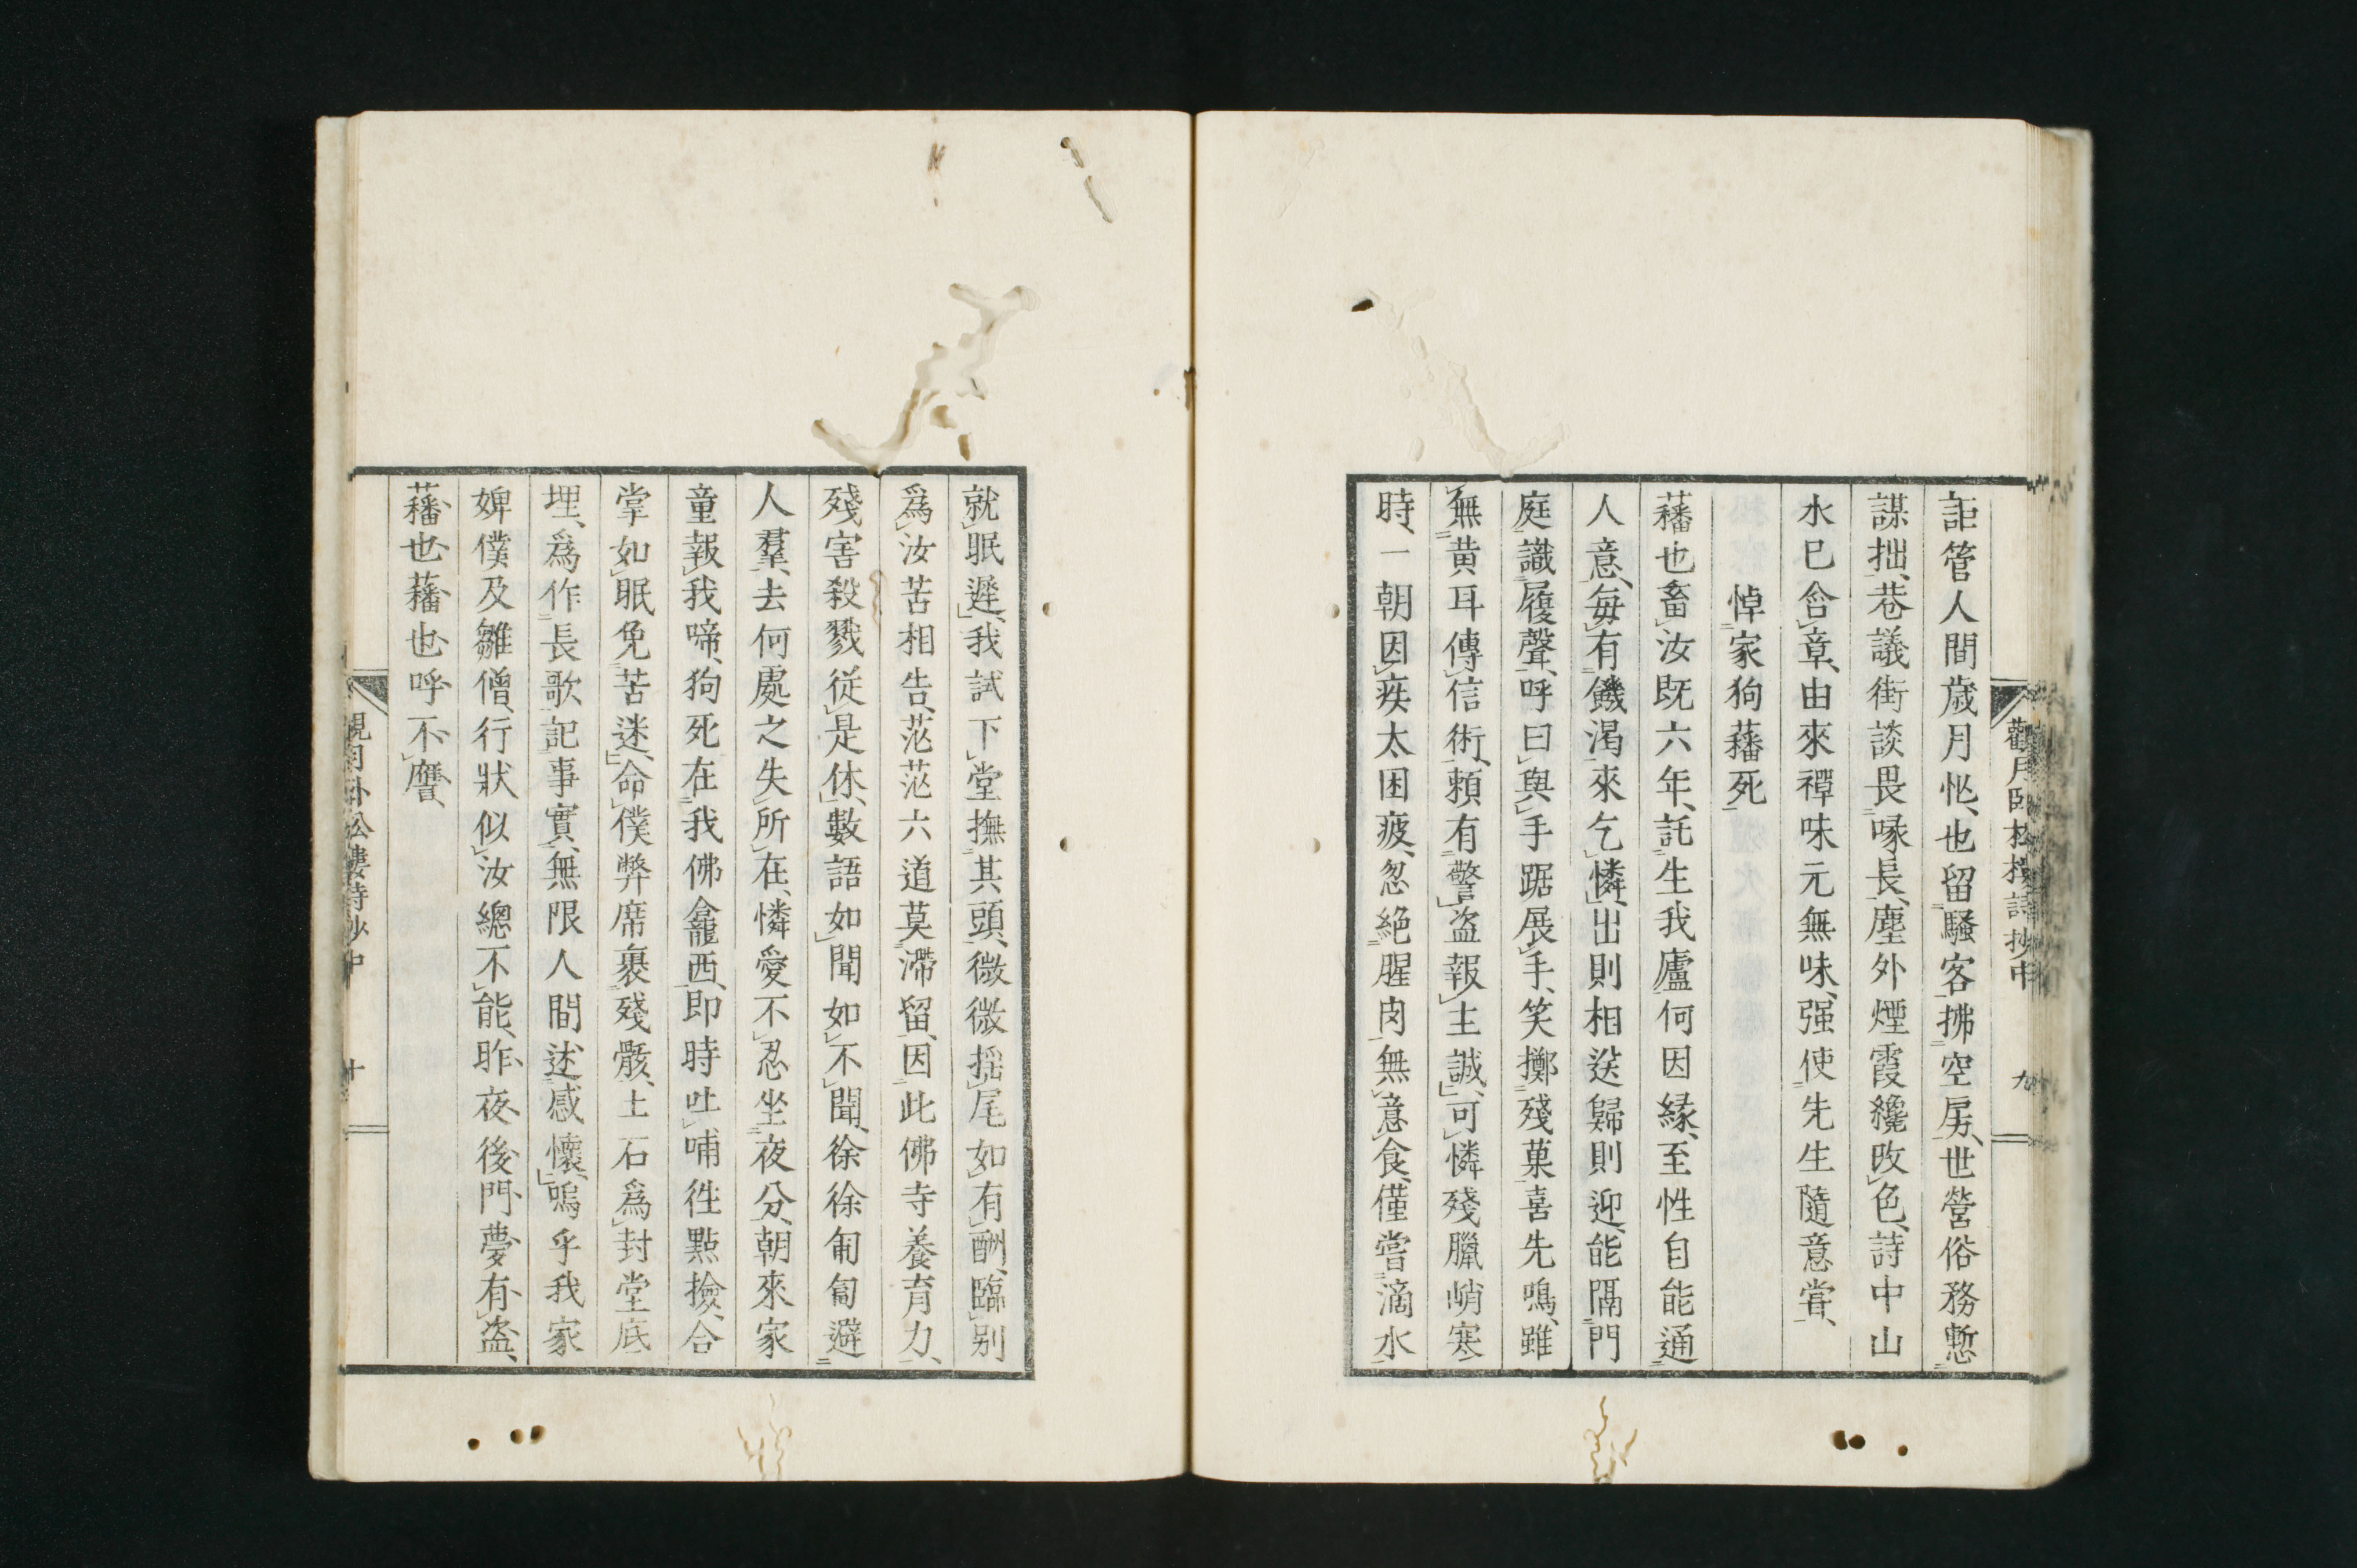 詎管人間歳月忙、也留騷客拂空房、世營俗務慙
謀拙、巷議街談畏喙長、塵外煙霞纔改色、詩中山
水已含章、由來禪味元無味、强使先生隨意嘗、
悼家狗蕃死
蕃也畜汝既六年、託生我廬何因緣、至性自能通
人意、每有饑渴來乞憐、出則相送歸則迎、能隔門
庭識履聲、呼曰與手踞展手、笑擲殘菓喜先鳴、雖
無黄耳傳信術、頼有警盗報主誠、可憐殘臘峭寒
時、一朝因疾太困疲、忽絶腥肉無意食、僅嘗滴水
就眠遲、我試下堂撫其頭、微微揺尾如有酬、臨别
爲汝苦相告、茫茫六道莫滯留、因此佛寺養育力、
殘害殺戮從是休、數語如聞如不聞、徐徐匍匐避
人羣、去何處之失所在、憐愛不忍坐夜分、朝來家
童報我啼、狗死在我佛龕西、即時吐哺徃點撿、合
掌如眠免苦迷、命僕弊席裹殘骸、土石爲封堂底
埋、爲作長歌記事實、無限人間述感懷、嗚乎我家
婢僕及雛僧、行狀似汝總不能、昨夜後門夢有盗、
蕃也蕃也呼不譍、
觀月臥松樓詩抄中
九
觀月臥松樓詩抄中
十